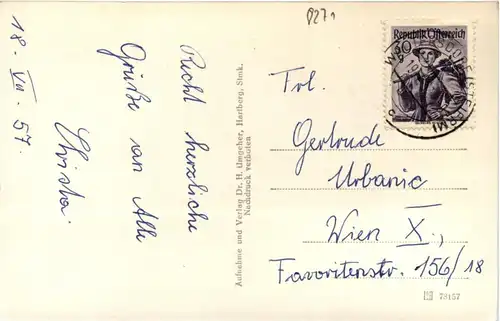 8271
18. VII. 57.
Recht herzliche
Grüße an Alle
Christa.
Aufnahme und Verlag Dr. H. Umgeher, Hartberg, Stmk.
Nachdruck verboten
Republik Österreich
60 g
Frl.
Gertrude
Urbanic
Wien X.,
Favoritenstr. 156/18
73157